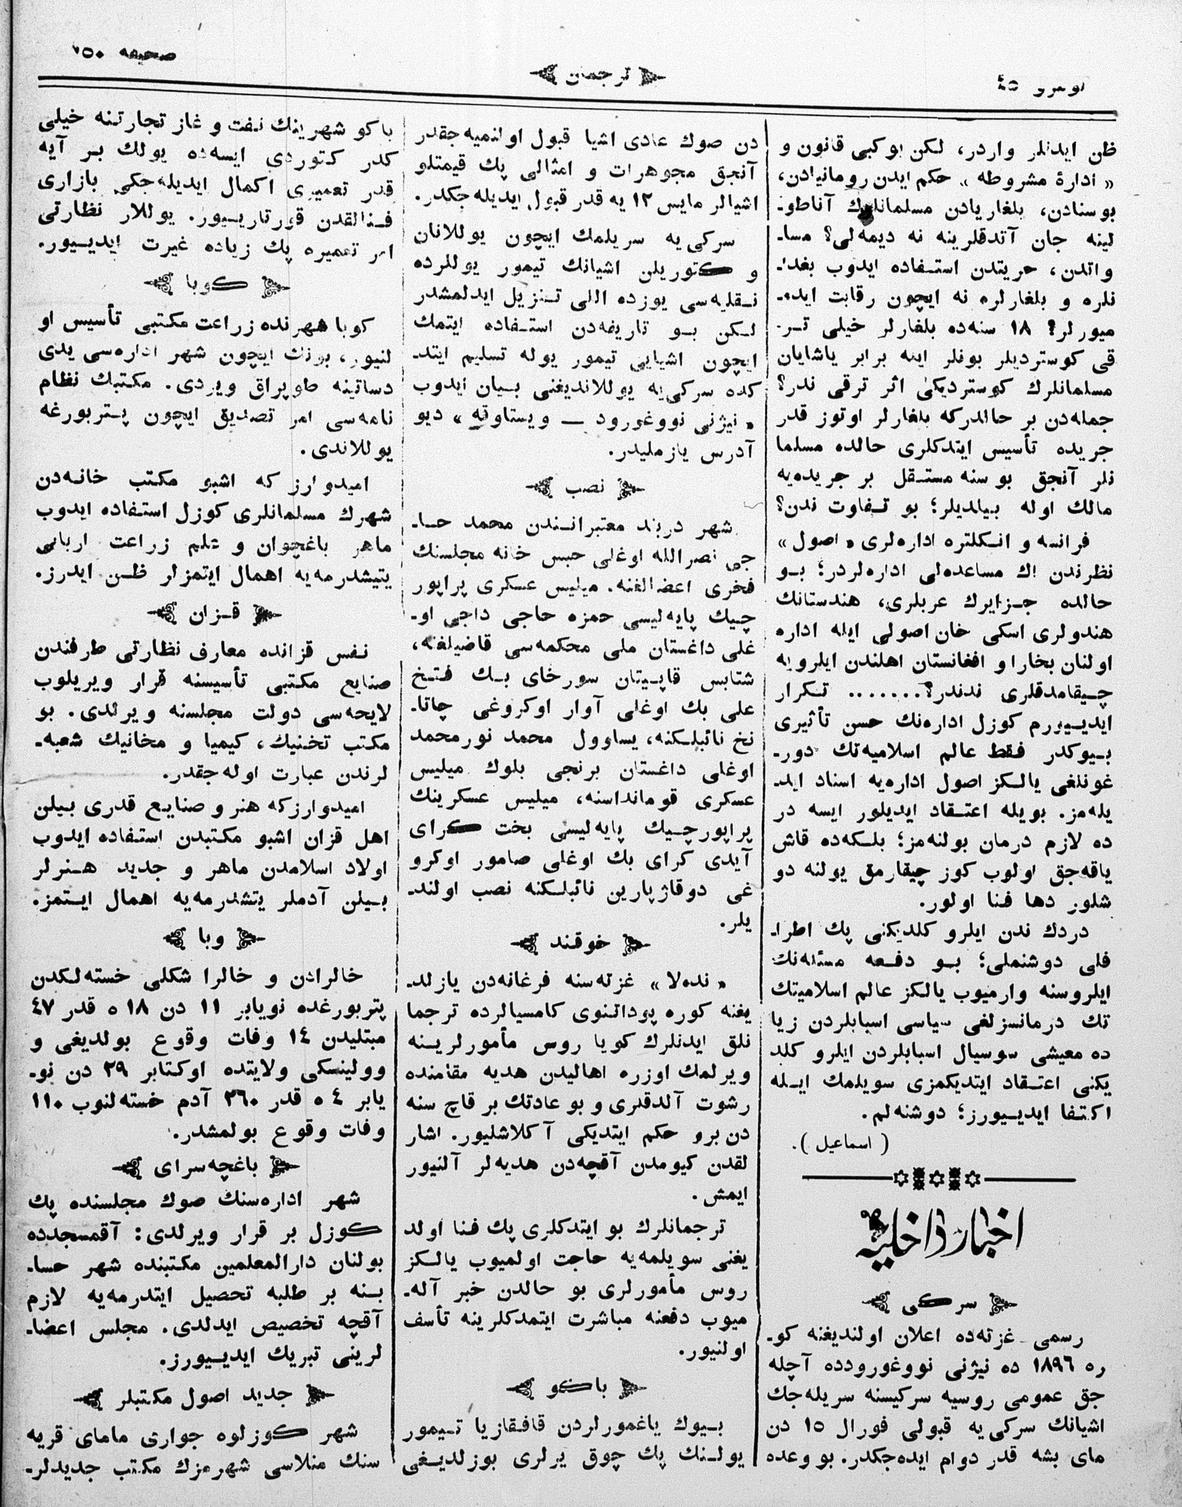 نومرو ٤٥
ترجمان
صحيفه ٢٥٠
ظن ايدنلر واردر، لكن بوكبى قانون و
« ادارۀ مشروطه » حكم ايدن رومانيادن،
بوسنادن، بلغاريادن مسلمانلرك آناطو-
لينه جان آتدقلرينه نه ديمه‌لى؟ مسا-
واتدن، حريتدن استفاده ايدوب بغدا-
نلره و بلغارلره نه ايچون رقابت ايده-
ميورلر؟ ١٨ سنه‌ده بلغارلر خيلى تر-
قى كوسترديلر بونلر ايله برابر ياشايان
مسلمانلرك كوسترديكى اثر ترقى ندر؟
جمله‌دن بر حالدركه بلغارلر اوتوز قدر
جريده تأسيس ايتدكلرى حالده مسلما
نلر آنجق بو سنه مستقل بر جريده‌يه
مالك اوله بيلديلر؛ بو تفاوت ندن؟
فرانسه و انكلتره اداره‌لرى « اصول »
نظرندن اك مساعده‌لى اداره‌لردر؛ بو
حالده جزايرك عربلرى، هندستانك
هندولرى اسكى خان اصولى ايله اداره
اولنان بخارا و افغانستان اهلندن ايلرويه
چيقامدقلرى ندندر؟....... تكرار
ايديورم كوزل اداره‌نك حسن تأثيرى
بيوكدر فقط عالم اسلاميه‌نك دور-
غونلغى يالكز اصول اداره‌يه اسناد ايد-
يله‌مز. بويله اعتقاد ايديلور ايسه در
ده لازم درمان بولنه‌مز؛ بلكه‌ده قاش
ياقه‌جق اولوب كوز چيقارمق يولنه دو
شلور دها فنا اولور.
دردك ندن ايلرو كلديكنى پك اطرا-
فلى دوشنملى؛ بو دفعه مسئله‌نك
ايلروسنه وارميوب يالكز عالم اسلاميتك
تك درمانسزلغى سياسى اسبابلردن زيا
ده معيشى سوسيال اسبابلردن ايلرو كلد
يكنى اعتقاد ايتديكمزى سويلمك ايله
اكتفا ايديورز؛ دوشنه‌لم.
( اسماعيل ).
اخبار داخليه
سركى
رسمى غزته‌ده اعلان اولنديغنه كو-
ره ١٨٩٦ ده نيژنى نووغورودده آچله
جق عمومى روسيه سركيسنه سريله‌جك
اشيانك سركى‌يه قبولى فورال ١٥ دن
ماى بشه قدر دوام ايده‌جكدر. بو وعده
دن صوك عادى اشيا قبول اولنميه‌جقدر
آنجق مجوهرات و امثالى پك قيمتلو
اشيالر مايس ١٢ يه قدر قبول ايديله‌جكدر.
سركى‌يه سريلمك ايچون يوللانان
و كتوريلن اشيانك تيمور يوللرده
نقليه‌سى يوزده اللى تنزيل ايدلمشدر
لكن بو تاريفه‌دن استفاده ايتمك
ايچون اشيايى تيمور يوله تسليم ايتد-
كده سركى‌يه يوللانديغنى بيان ايدوب
« نيژنى نووغورود — ويستاوقه » ديو
آدرس يازمليدر.
نصب
شهر دربند معتبرانندن محمد حا-
جى نصرالله اوغلى حبس خانه مجلسنك
فخرى اعضالغنه. ميليس عسكرى پراپور
چيك پايه‌ليسى حمزه حاجى داجى او-
غلى داغستان ملى محكمه‌سى قاضيلغنه،
شتابس قاپيتان سورخاى بك فتح
على بك اوغلى آوار اوكروغى چاتا-
نخ نائبلكنه، يساوول محمد نورمحمد
اوغلى داغستان برنجى بلوك ميليس
عسكرى قومانداسنه، ميليس عسكرينك
پراپورچيك پايه‌ليسى بخت كراى
آيدى كراى بك اوغلى صامور اوكرو
غى دوقاژپارين نائبلكنه نصب اولند-
يلر.
خوقند
« نده‌لا » غزته‌سنه فرغانه‌دن يازلد-
يغنه كوره پوداتنوى كامسيالرده ترجما
نلق ايدنلرك كويا روس مأمورلرينه
ويرلمك اوزره اهاليدن هديه مقامنده
رشوت آلدقلرى و بو عادتك بر قاچ سنه
دن برو حكم ايتديكى آكلاشليور. اشار
لقدن كيومدن آقچه‌دن هديه‌لر آلنيور
ايمش.
ترجمانلرك بو ايتدكلرى پك فنا اولد
يغنى سويلمه‌يه حاجت اولميوب يالكز
روس مأمورلرى بو حالدن خبر آله-
ميوب دفعنه مباشرت ايتمدكلرينه تأسف
اولنيور.
باكو
بيوك ياغمورلردن قافقازيا تيمور
يولنك پك چوق يرلرى بوزلديغى
باكو شهرينك نفت و غاز تجارتنه خيلى
كدر كتوردى ايسه‌ده يولك بر آيه
قدر تعميرى اكمال ايديله‌جكى بازارى
فنالقدن قورتاريور. يوللار نظارتى
امر تعميره پك زياده غيرت ايديور.
كوبا
كوبا شهرنده زراعت مكتبى تأسيس او
لنيور، بونك ايچون شهر اداره‌سى يدى
دساتينه طوپراق ويردى. مكتبك نظام
نامه‌سى امر تصديق ايچون پتربورغه
يوللاندى.
اميدوارز كه اشبو مكتب خانه‌دن
شهرك مسلمانلرى كوزل استفاده ايدوب
ماهر باغچوان و علم زراعت اربابى
يتيشدرمه‌يه اهمال ايتمزلر ظن ايدرز.
قزان
نفس قزانده معارف نظارتى طرفندن
صنايع مكتبى تأسيسنه قرار ويريلوب
لايحه‌سى دولت مجلسنه ويرلدى. بو
مكتب تخنيك، كيميا و مخانيك شعبه-
لرندن عبارت اوله‌جقدر.
اميدوارزكه هنر و صنايع قدرى بيلن
اهل قزان اشبو مكتبدن استفاده ايدوب
اولاد اسلامدن ماهر و جديد هنرلر
بيلن آدملر يتشدرمه‌يه اهمال ايتمز.
وبا
خالرادن و خالرا شكلى خسته‌لكدن
پتربورغده نويابر ١١ دن ١٨ ه قدر ٤٧
مبتليدن ١٤ وفات وقوع بولديغى و
وولينسكى ولايتده اوكتابر ٢٩ دن نو-
يابر ٤ ه قدر ٣٦٠ آدم خسته‌لنوب ١١٠
وفات وقوع بولمشدر.
باغچه‌سراى
شهر اداره‌سنك صوك مجلسنده پك
كوزل بر قرار ويرلدى: آقمسجدده
بولنان دارالمعلمين مكتبنده شهر حسا-
بنه بر طلبه تحصيل ايتدرمه‌يه لازم
آقچه تخصيص ايدلدى. مجلس اعضا-
لرينى تبريك ايديورز.
جديد اصول مكتبلر
شهر كوزلوه جوارى ماماى قريه
سنك منلاسى شهرمزك مكتب جديدلر-